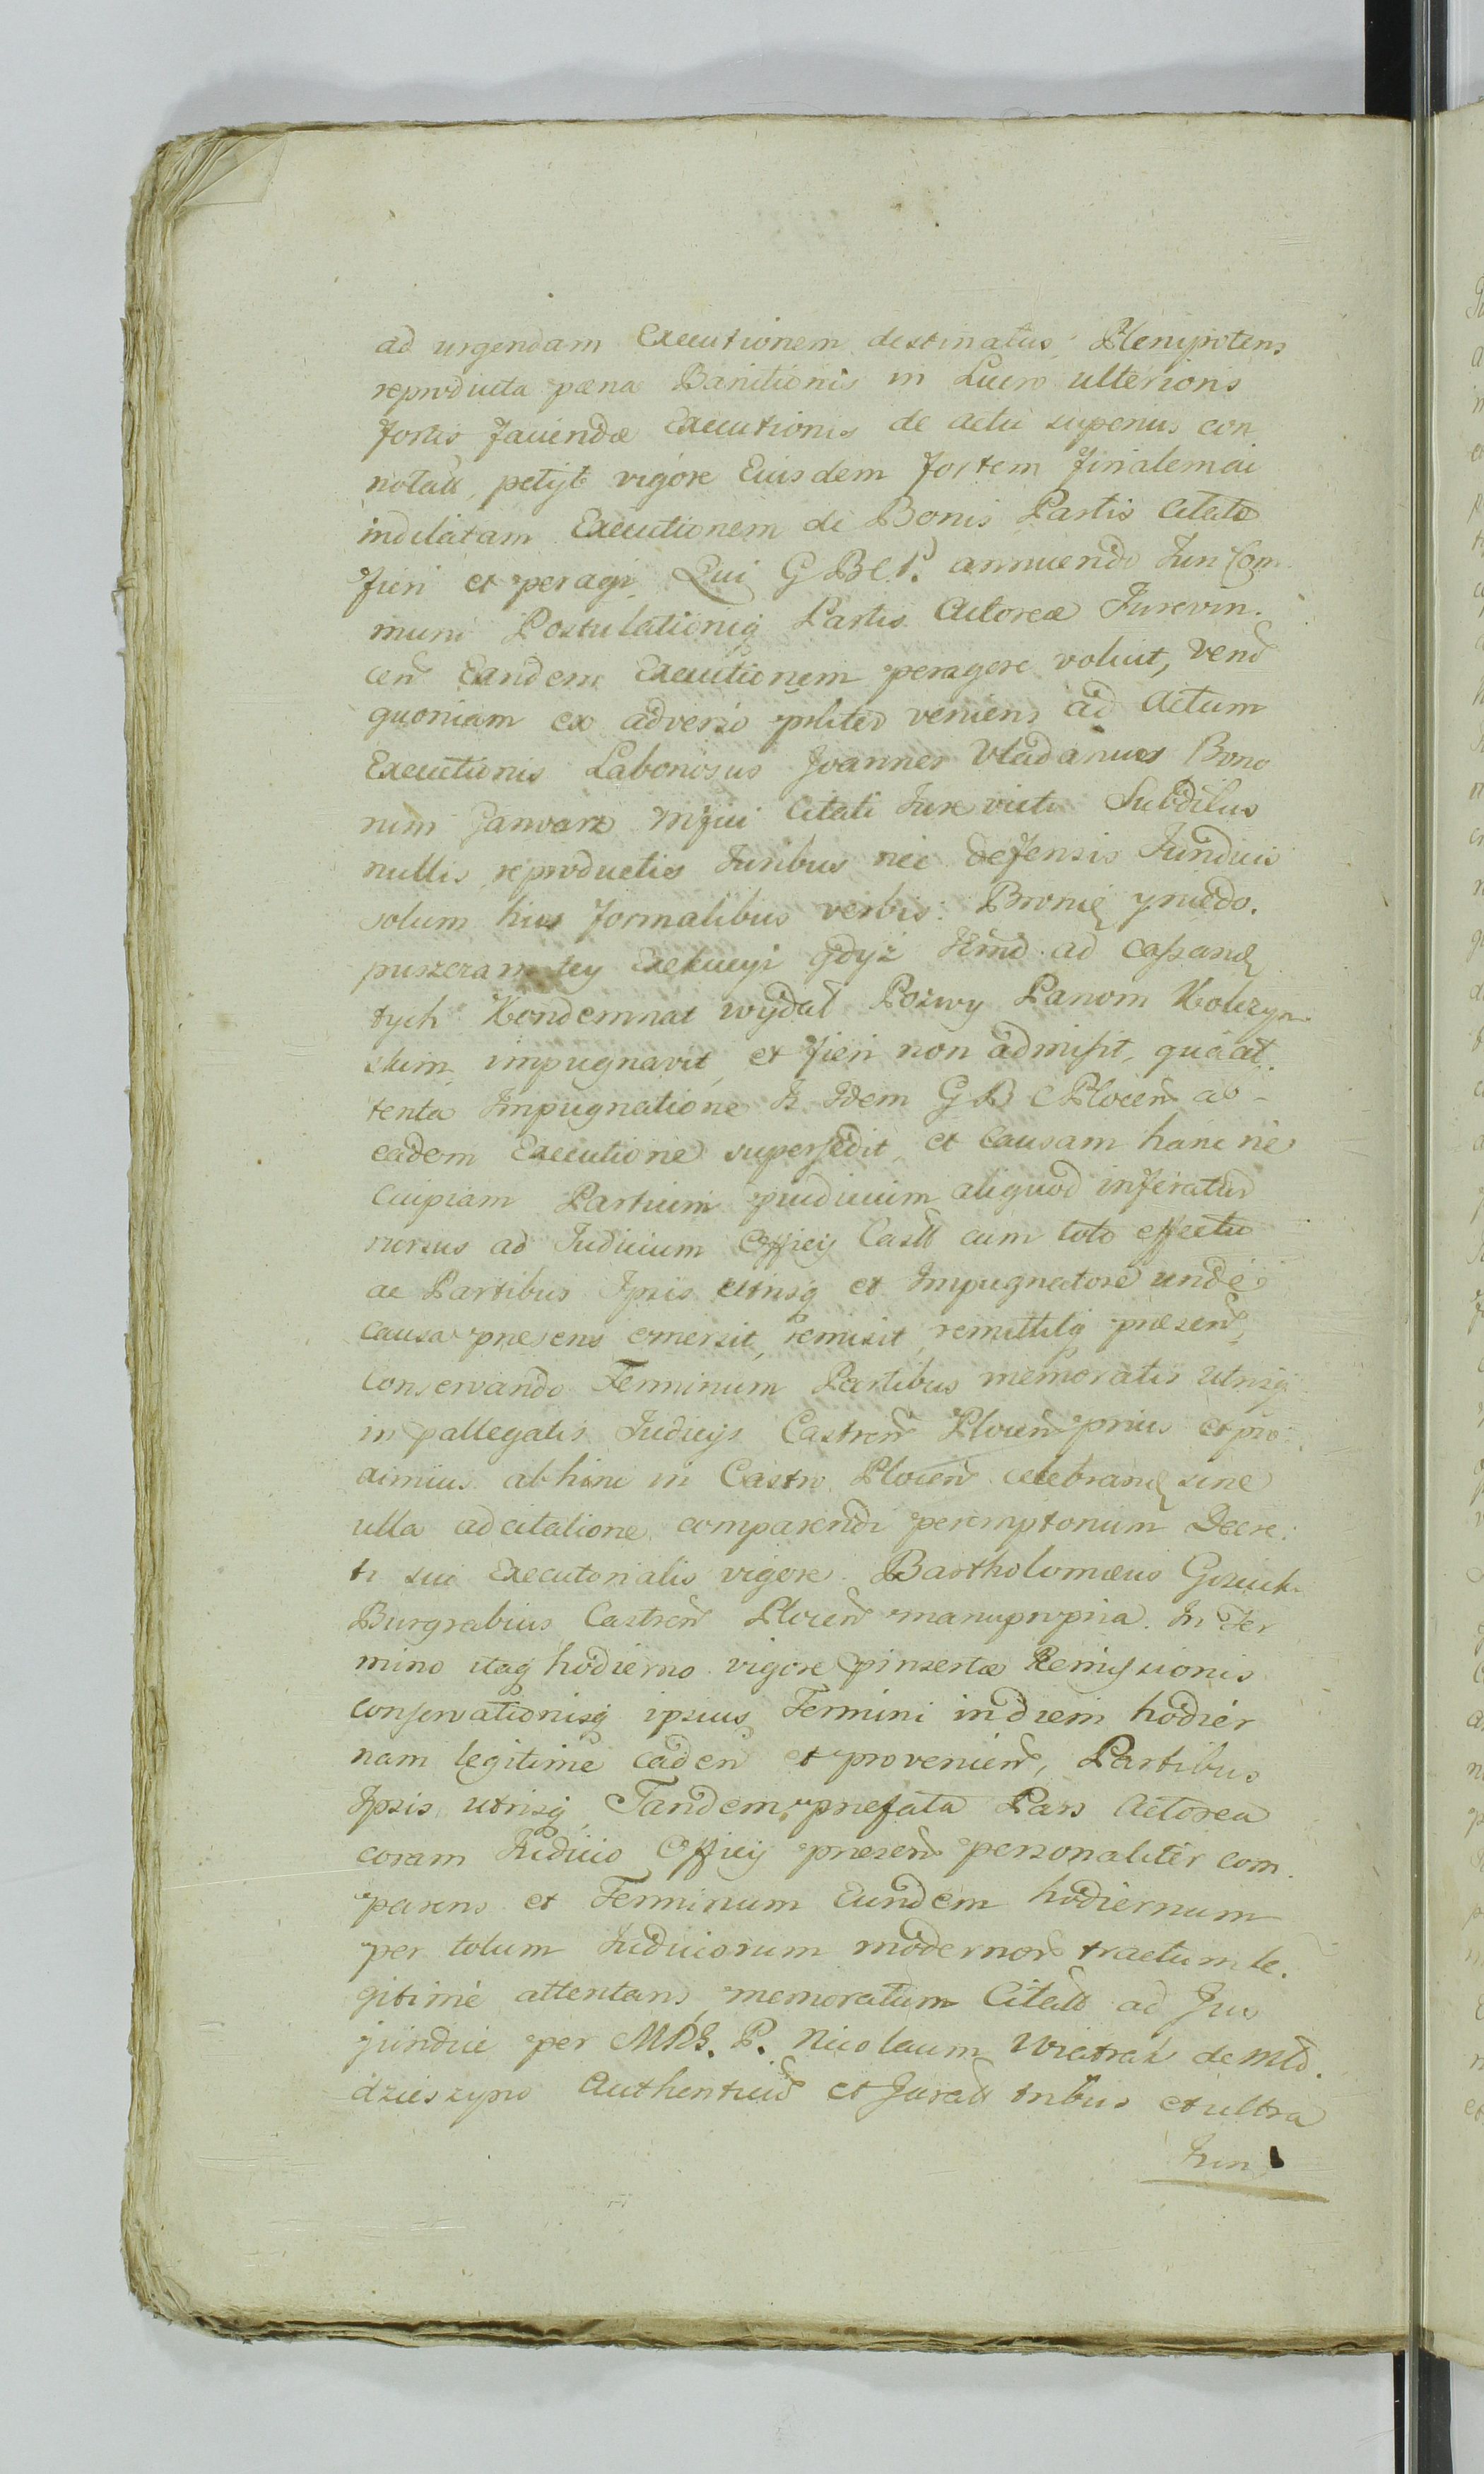 ad urgendam Executionem destinatus, Plenipotens
reproducta pæna Banitionis in Lucro ulterioris
fortis faciendæ Executionis de actu superius con
notatt, petijt vigore Eiusdem fortem finalemqȝ
indilatam Executionem de Bonis Partis Citatæ
fieri et peragi. Qui G B C P. annuendo Juri Com
muni Postulationiqȝ Partis Actoreæ Jurevin.
cen Eandem Executionem peragere voluit, Verū
quoniam ex adverso pŝliter veniens ad Actum
Executionis Laboriosus Joannes Vladanus Bono
rum Janvarz Mjici Citati Jure victi Subditus
nullis reproductis Juribus nec defensis Juridicis
solum his formalibus verbis: Bronię yniedo.
puszczam tey Exekucyi gdyż Jimć ad Cassand
tych Kondemnat wydał Pozwy Panom Kolczyn
skim impugnavit, et fieri non admisit, qua at
tenta Impugnatione Is Idem G B C Plocen ab
eadem Executione supersedit, et Causam hanc ne
Cuipiam Partium præjudicium aliquod inferatur
rursus ad Judicium Officij Castr cum toto effectu
ac Partibus Ipsis utrisqȝ et Impugnatore unde
Causa præsens emersit, remisit, remittitqȝ præsen,
Conservando Terminum Partibus memoratis utrisqȝ
in pallegatis Judicijs Castren Plocen prius et pro
ximius abhinc in Castro Plocen celebrand sine
ulla adcitatione comparendi peremptorium Decre.
ti sui Executorialis vigore. Bartholomæus
Burgrabius Castren Plocen manupropria. In Ter
mino itaqȝ hodierno vigore pinsertæ Remissionis
conservationisqȝ ipsius Termini in diem hodier
nam legitime caden et provenien, Partibus
Ipsis utrisqȝ Tandem præfata Pars Actorea
coram Judicio Officij præsen personaliter com
parens et Terminum Eundem hodiernum
per totum Judiciorum modernor tractum le.
gitime attentans, memoratum Citatt ad Jus
juridice per MRS. P. Nicolaum Wiatrak de Mło.
dzieszyno Authenticū et Juratt tribus et ultra
Jūri